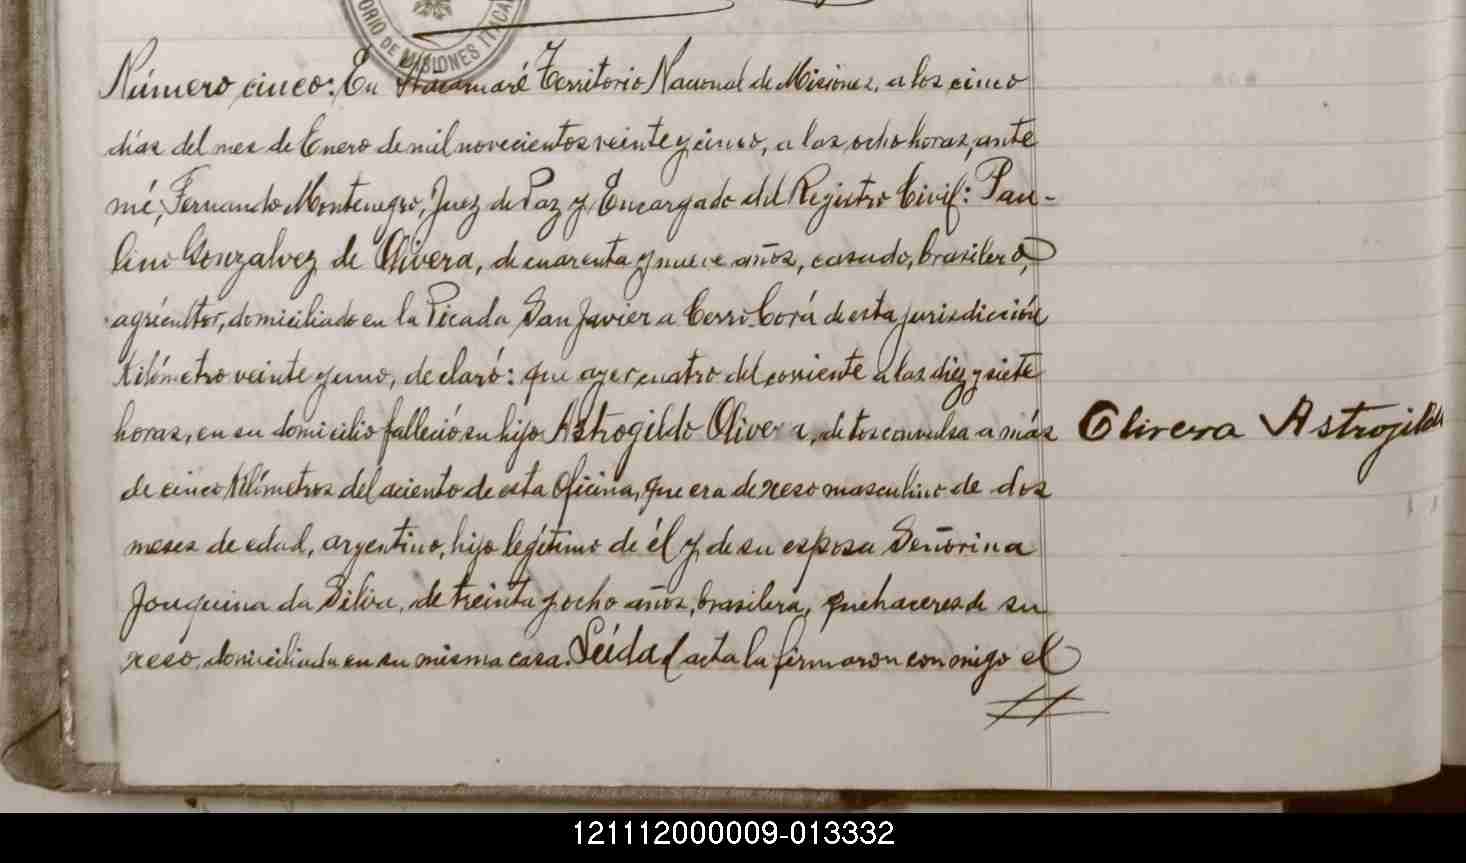 ORIO DE MISIONES ITACA
Número cinco: En Itacaruaré Territorio Nacional de Misiones, a los cinco
días del mes de Enero de mil novecientos veinte y cinco, a las ocho horas, ante
mé, Fernando Montenegro, Juez de Paz y Encargado del Registro Civil: Pau-
lino Gonzalvez de Olivera, de cuarenta y nueve años, casado, brasilero,
agricultor, domiciliado en la Picada San Javier a Cerro Corá de esta jurisdicción
kilómetro veinte y uno, declaró: que ayer cuatro del corriente a las diez y siete
horas, en su domicilio falleció su hijo Astrogildo Olivera, de tos convulsa a más
Olivera Astrojildo
de cinco kilómetros del aciento de esta Oficina, que era de sexo masculino de dos
meses de edad, argentino, hijo legítimo de él y de su esposa Señorina
Joaquina da Silva, de treinta y ocho años, brasilera, quehaceres de su
sexo, domiciliada en su misma casa. Leída el acta la firmaron conmigo el
121112000009-013332